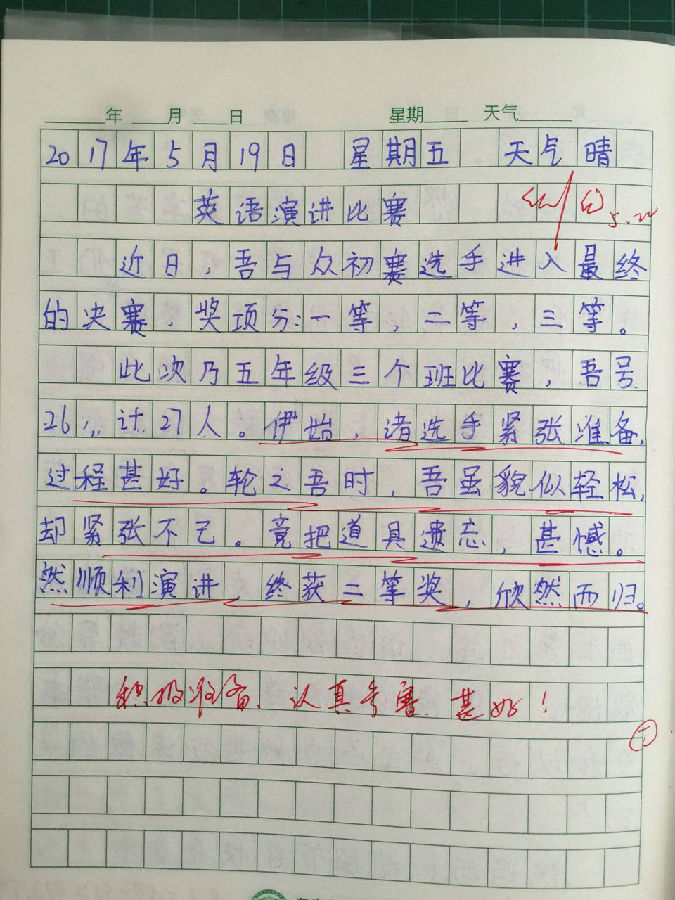 年 月 日 星期 天气
2017年5月19日 星期五 天气晴
英语演讲比赛
5.22
近日，吾与众初赛选手进入最终
的决赛，奖项分：一等，二等，三等。
此次乃五年级三个班比赛，吾号
26，计27人。伊始，诸选手紧张准备，
过程甚好。轮之吾时，吾虽貌似轻松，
却紧张不已。竟把道具遗忘，甚憾。
然顺利演讲，终获二等奖，欣然而归。
积极准备、认真参赛，甚好！